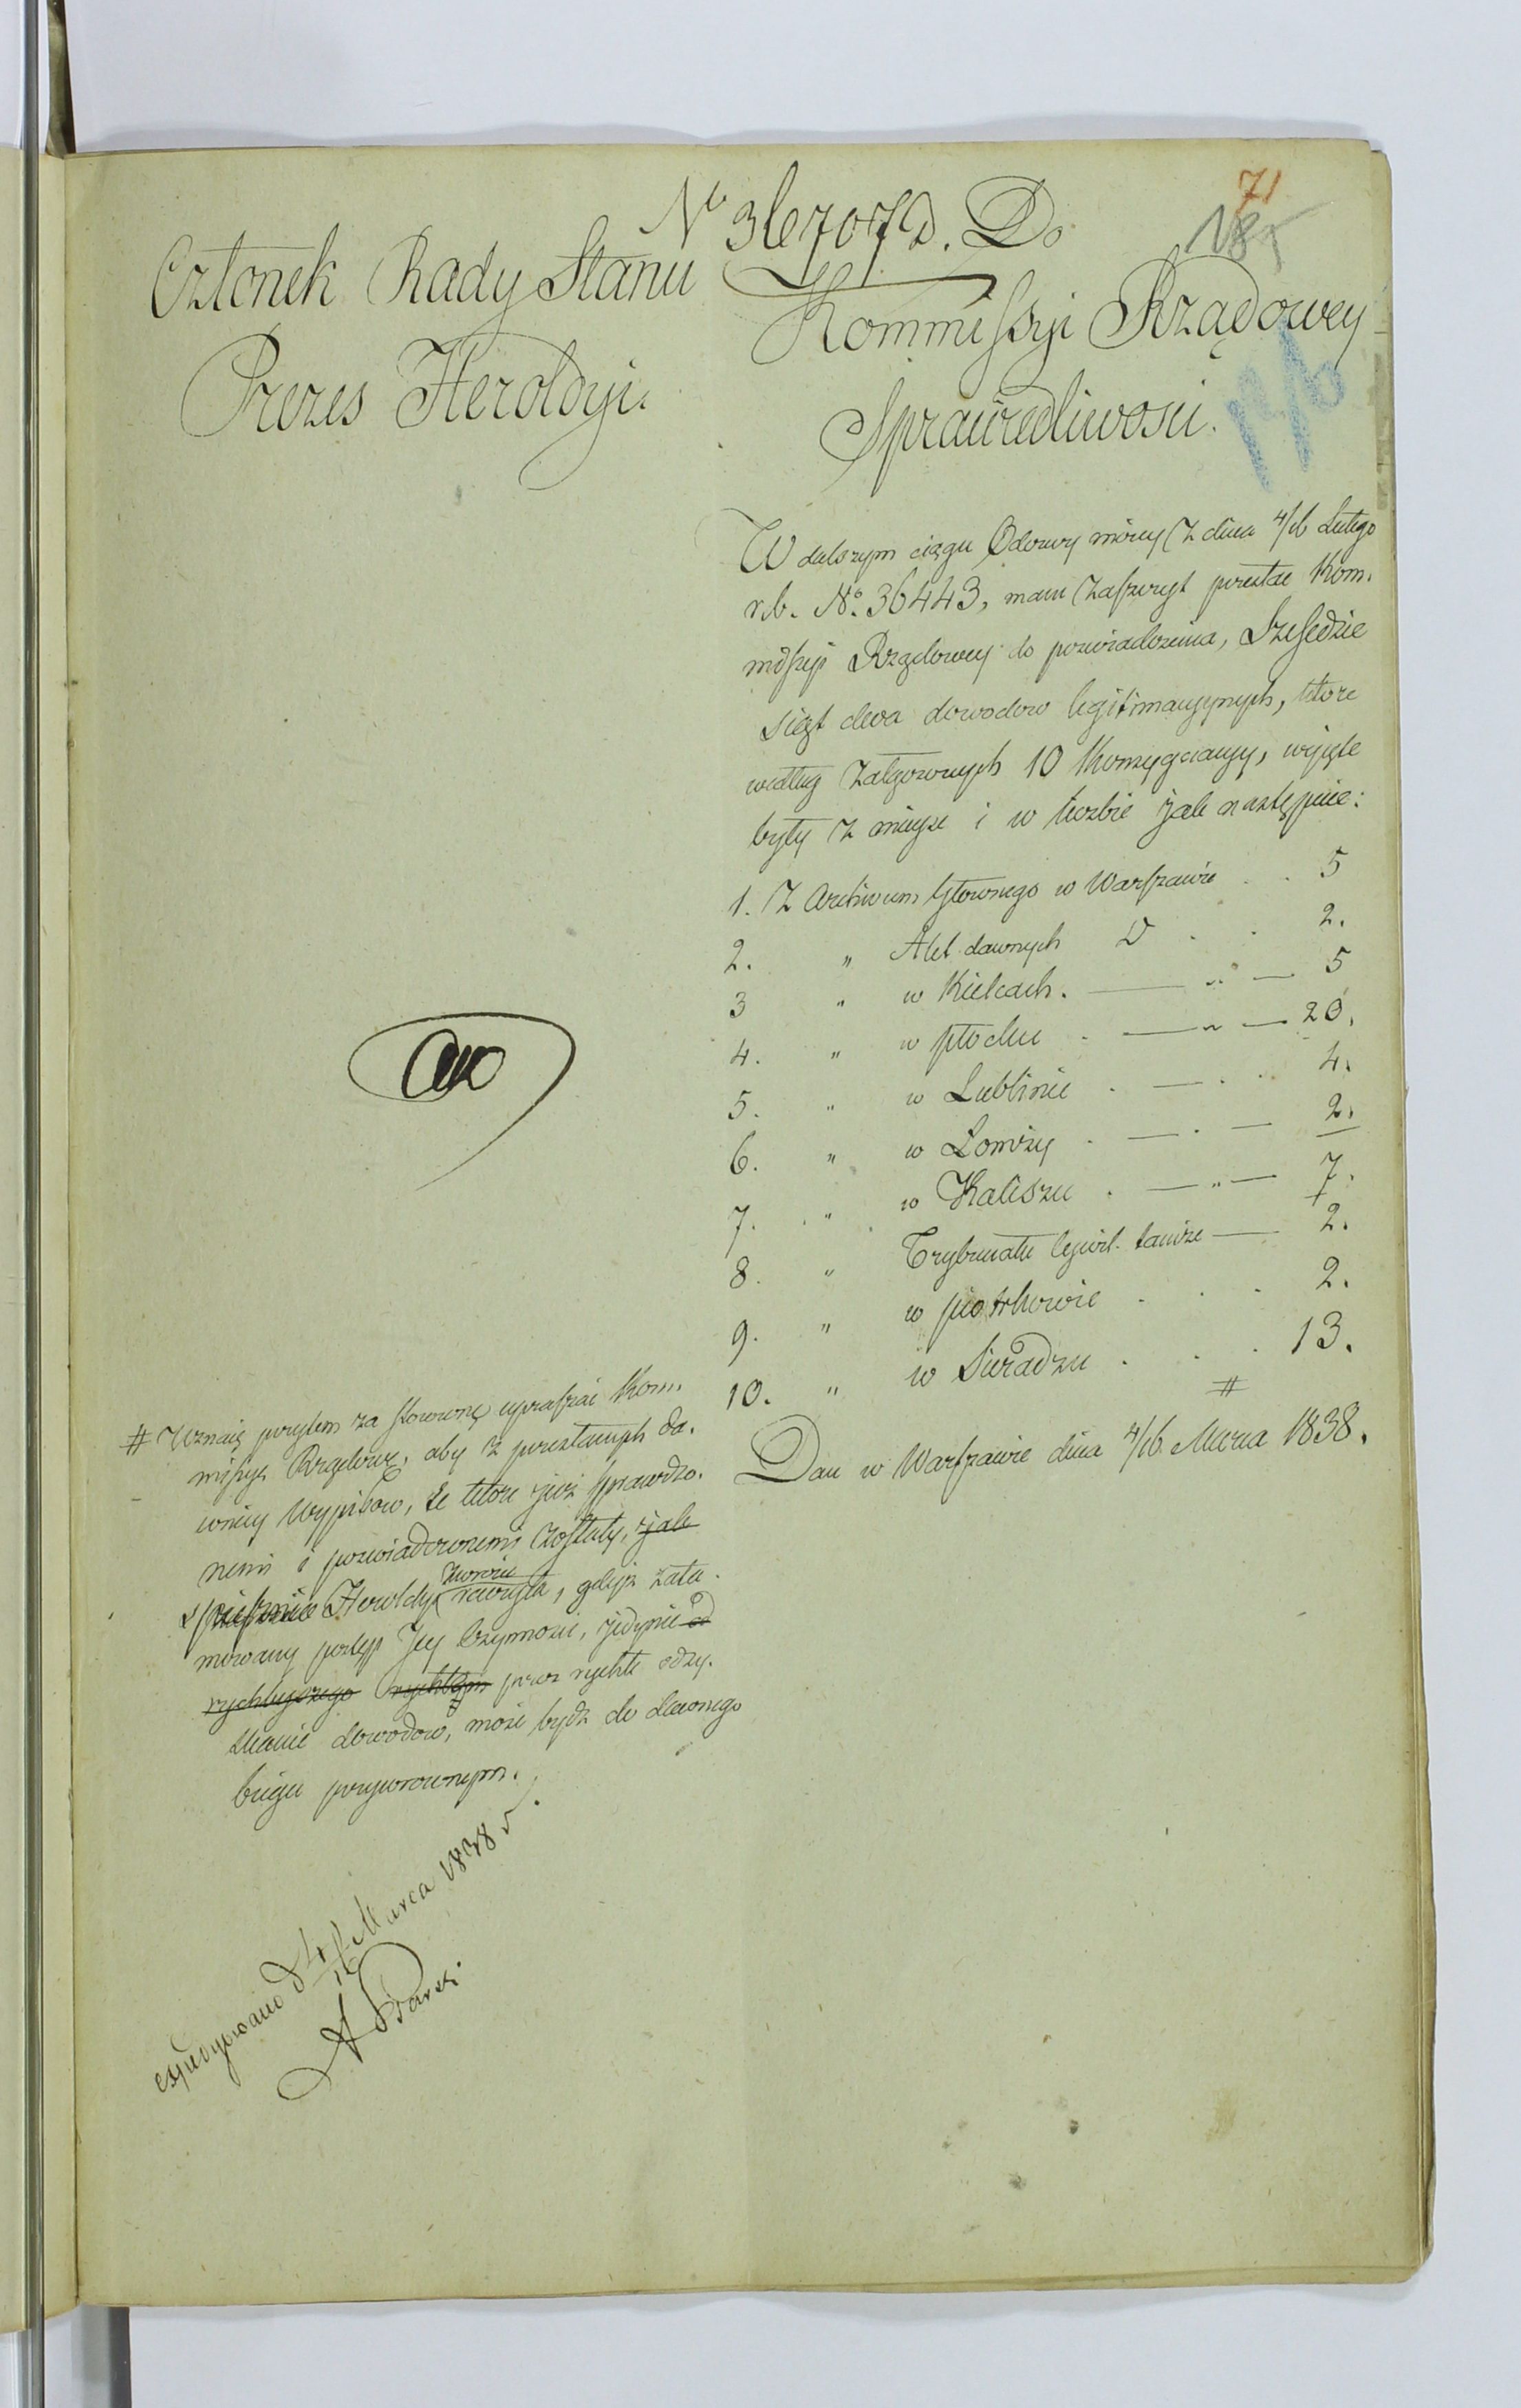 71
185
No 36707 D. Do
Członek Rady Stanu
Prezes Heroldyi.
Kommissyi Rządowey
Sprawiedliwosci.
W dalszym ciągu Odezwy moiey z dnia 4/16 Lutego
r. b. No. 36443, mam zaszczyt przesłać Kom.
missyi Rządowey do poswiadczenia, Szesćdzie
siąt dwa dowodow legitimacyynych, ktore
według załączonych 10 Konsygnacyy, wyięte
były z mieysc i w liczbie jak następuie:
1. Z Archivum Głownego w Warszawie . . 5
2. " Akt dawnych D . . 2.
3 " w Kielcach. — " — 5
4. " w Płocku . — " — 20.
5. " w Lublinie . — . . 4.
6. " w Łomży . — . — 2.
7. " w Kaliszu . — " — 7.
8. " Trybunału Cywil. tamże — 2.
9. " w Piotrkowie . . . 2.
10. " w Sieradzu . . . 13.
#
Dan w Warszawie dnia 4/16 Marca 1838.
# Uznaię przytem za stosowne upraszać Kom.
missyą Rządową, aby z przesłanych da.
wniey Wypisow, te ktore już sprawdzo.
nemi i poswiadczonemi zostały, jak
spiesznie Heroldyi zwrocić raczyła, gdyż zata.
mowany postęp Jey czynnosci, jedynie od
rychleyszego rychłym przez rychłe odzy.
skanie dowodow, może bydź do dawnego
biegu przywroconym.
expedyowano d 4/16 Marca 1838 r.